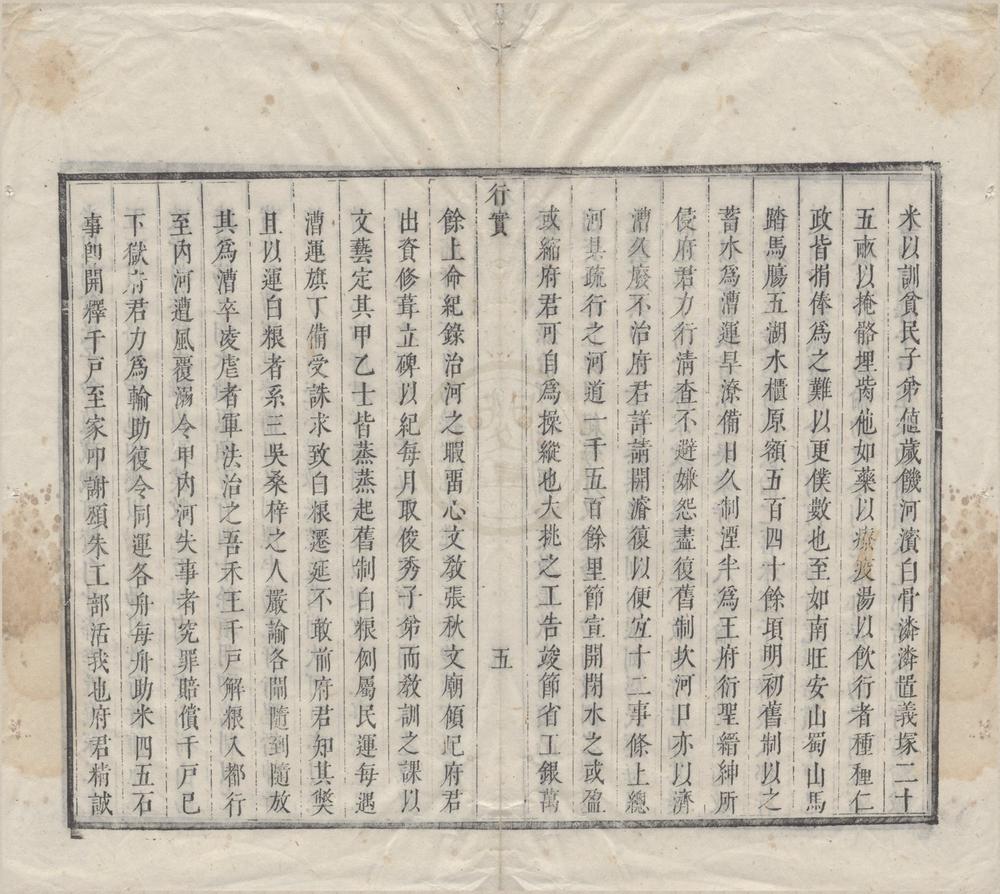 米以訓貧民子弟値歲饑河濱白骨潾潾置義塚二十
五畝以掩骼埋胔他如藥以療疫湯以飲行者種種仁
政皆捐俸為之難以更僕數也至如南旺安山蜀山馬
踏馬腸五湖水櫃原額五百四十餘頃明初舊制以之
蓄水為漕運旱潦備日久制湮半為王府衍聖縉紳所
侵府君力行清查不避嫌怨盡復舊制坎河口亦以濟
漕久廢不治府君詳請開濬復以便宜十二事條上總
河其疏行之河道一千五百餘里節宣開閉水之或盈
或縮府君可自為操縱也大挑之工告竣節省工銀萬
行實
五
餘上命紀錄治河之暇畱心文敎張秋文廟傾圮府君
出資修葺立碑以紀每月取俊秀子弟而敎訓之課以
文藝定其甲乙士皆蒸蒸起舊制白粮例屬民運每遇
漕運旗丁備受誅求致白粮遷延不敢前府君知其獘
且以運白粮者系三吳桑梓之人嚴諭各閘隨到隨放
其為漕卒凌虐者軍法治之吾禾王千戸解粮入都行
至内河遭風覆溺令甲内河失事者究罪賠償千戸已
下獄府君力為輸助復令同運各舟每舟助米四五石
事卽開釋千戸至家叩謝頌朱工部活我也府君精誠